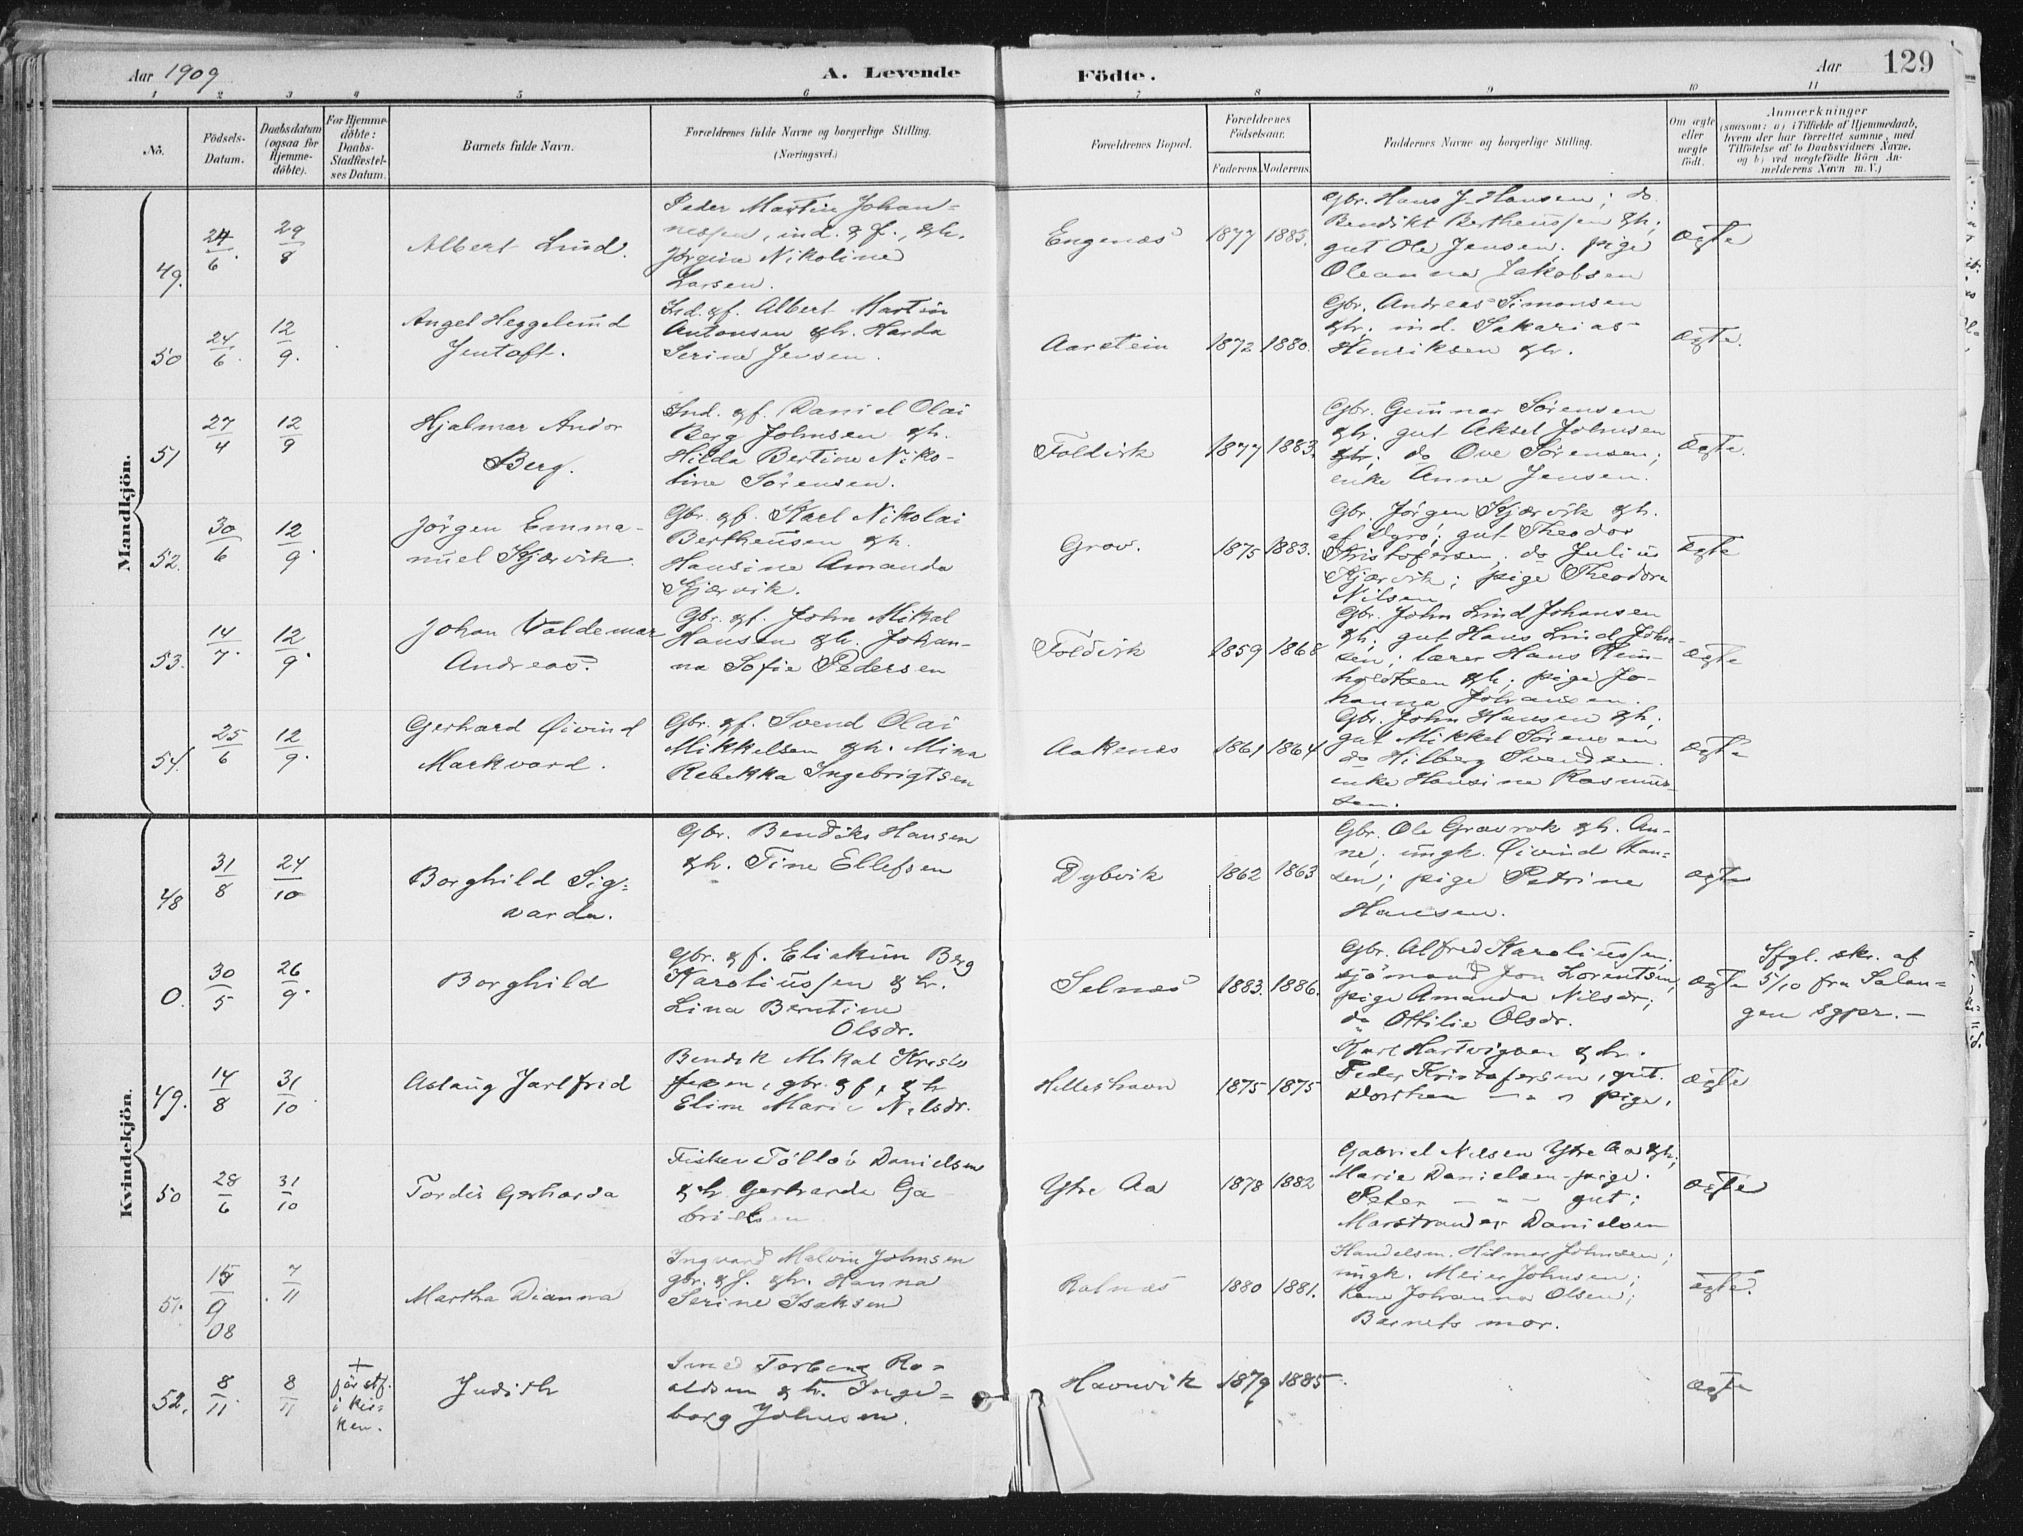 Aar 1909
A. Levende
Födte.
Aar
129
1 2 3 4 5 6 7 8 9 10 11
No.
Födsels-
Datum.
Daabsdatum
(ogsaa for
Hjemme-
döbte).
For Hjemme-
döbte:
Daabs-
Stadfæstel-
ses Datum.
Barnets fulde Navn.
Forældrenes fulde Navne og borgerlige Stilling.
(Næringsvei.)
Forældrenes Bopæl.
Forældrenes
Födselsaar.
Faderens
Moderens
Faddernes Navne og borgerlige Stilling.
Om ægte
eller
uægte
födt.
Anmærkninger
(saasom: a) i Tilfælde af Hjemmedaab,
hvem der har forrettet samme, med
Tilföielse af to Daabsvidners Navne.
og b) ved uægtefödte Börn An-
melderens Navn m. V.)
Mandkjön.
49.
24/6.
29/8
Albert Lind.
Peder Martin Johan-
nessen, ind. & f., & h.
Jørgine Nikoline
Larsen.
Engenæs
1877 1885.
Gbr. Hans J. Hansen; do
Bendikt Bertheussen & h;
gut Ole Jensen; pige
Oleanna Jakobsen
ægte
50
24/6.
12/9.
Angel Heggelund
Jentoft.
Ind. & f. Albert Martin
Antonsen & h. Harda
Serine Jensen.
Aarstein
1872 1880.
Gbr. Andreas Simonsen
& h. ind. Sakarias
Henriksen & h.
ægte.
51
27/4
12/9
Hjalmar Andor
Berg.
Ind. & f. Daniel Olai
Berg Johnsen & h.
Hilda Bertine Niko-
line Sörensen.
Foldvik
1877 1883.
Gbr. Gunnar Sörensen
& h. gut Aksel Johnsen
gbr; do Ove Sörensen;
enke Anne Jensen.
ægte.
52.
30/6
12/9.
Jörgen Emma-
nuel Kjærvik.
Gbr. & f. Karl Nikolai
Bertheusen & h.
Hansine Amanda
Kjærvik.
Grov.
1875 1883.
Gbr. Jörgen Kjærvik & h.
af Dyrö; gut Theodor
Kristofersen; do Julius
Kjærvik; pige Theodora
Nilsen
ægte
53.
14/7.
12/9.
Johan Valdemar
Andreas.
Gbr. & f. John Mikal
Hansen & h. Johan-
na Sofie Pedersen
Foldvik
1859 1868
Gbr. John Lind Johansen
& h; gut Hans Lind John-
sen; lærer Hans Rein-
holdtsen & h; pige Jo-
hanna Johansen.
ægte
54.
25/6
12/9.
Gerhard Öivind
Markvard.
Gbr. & f. Svend Olai
Mikkelsen & h. Mina
Rebekka Ingebrigtsen
Aakenes
1861 1864
Gbr. John Hansen & h;
gut Mikkel Sörensen
do Hilberg Svendsen.
enke Hansine Rasmus-
sen.
ægte
Kvindekjön.
48
31/8
24/10
Borghild Sig-
varda.
Gbr. Bendiks Hansen
& h. Tine Ellefsen
Dybvik
1862 1863
Gbr. Ole Gravrok & h. An-
ne; ungk. Öivind Han-
sen; pige Petrine
Hansen.
ægte
0.
30/5
26/9.
Borghild
Gbr. & f. Eliakim Berg
Karoliussen & h.
Lina Berntine
Olsdr.
Selnæs
1883. 1886.
Gbr. Alfred Karoliussen;
sjömand Jon Lorentsen,
pige Amanda Nilsdr;
do Ottilie Olsdr.
ægte
Ifgl. skr. af
5/10 fra Salan-
gen sgpr. -
49.
14/8
31/10
Aslaug Jarlfrid
Bendik Mikal Kristo
fersen, gbr. & f, & h
Eline Marie Nilsdr.
Hilleshavn
1875 1875
Karl Hartvigsen & h.
Peder Kristofersen, gut.
Dorthea — " " pige.
ægte
50
28/6
31/10
Tordis Gerharda
Fisker Tölløv Danielsen
& h. Gerharda Ga
brielsen
Ytre Aa
1878 1882
Gabriel Nilsen Ytre Aa & h;
Marie Danielsen pige.
Peter — " — gut;
Marstrander Danielsen
ægte
51.
15/9
08
7/11
Martha Dianna
Ingvard Malvin Johnsen
gbr. & f. & h. Hanna
Serine Isaksen
Rolnæs
1880 1881.
Handelsm. Hilmar Johnsen;
ungk. Meier Johnsen;
kone Johanna Olsen;
Barnets mor.
ægte.
52.
8/11
8/11
+
för stf.
i kir-
ken.
Judith
Smed Torberg Ro-
aldsen & h. Inge-
borg Johnsen.
Havnvik
1879 1885
ægte